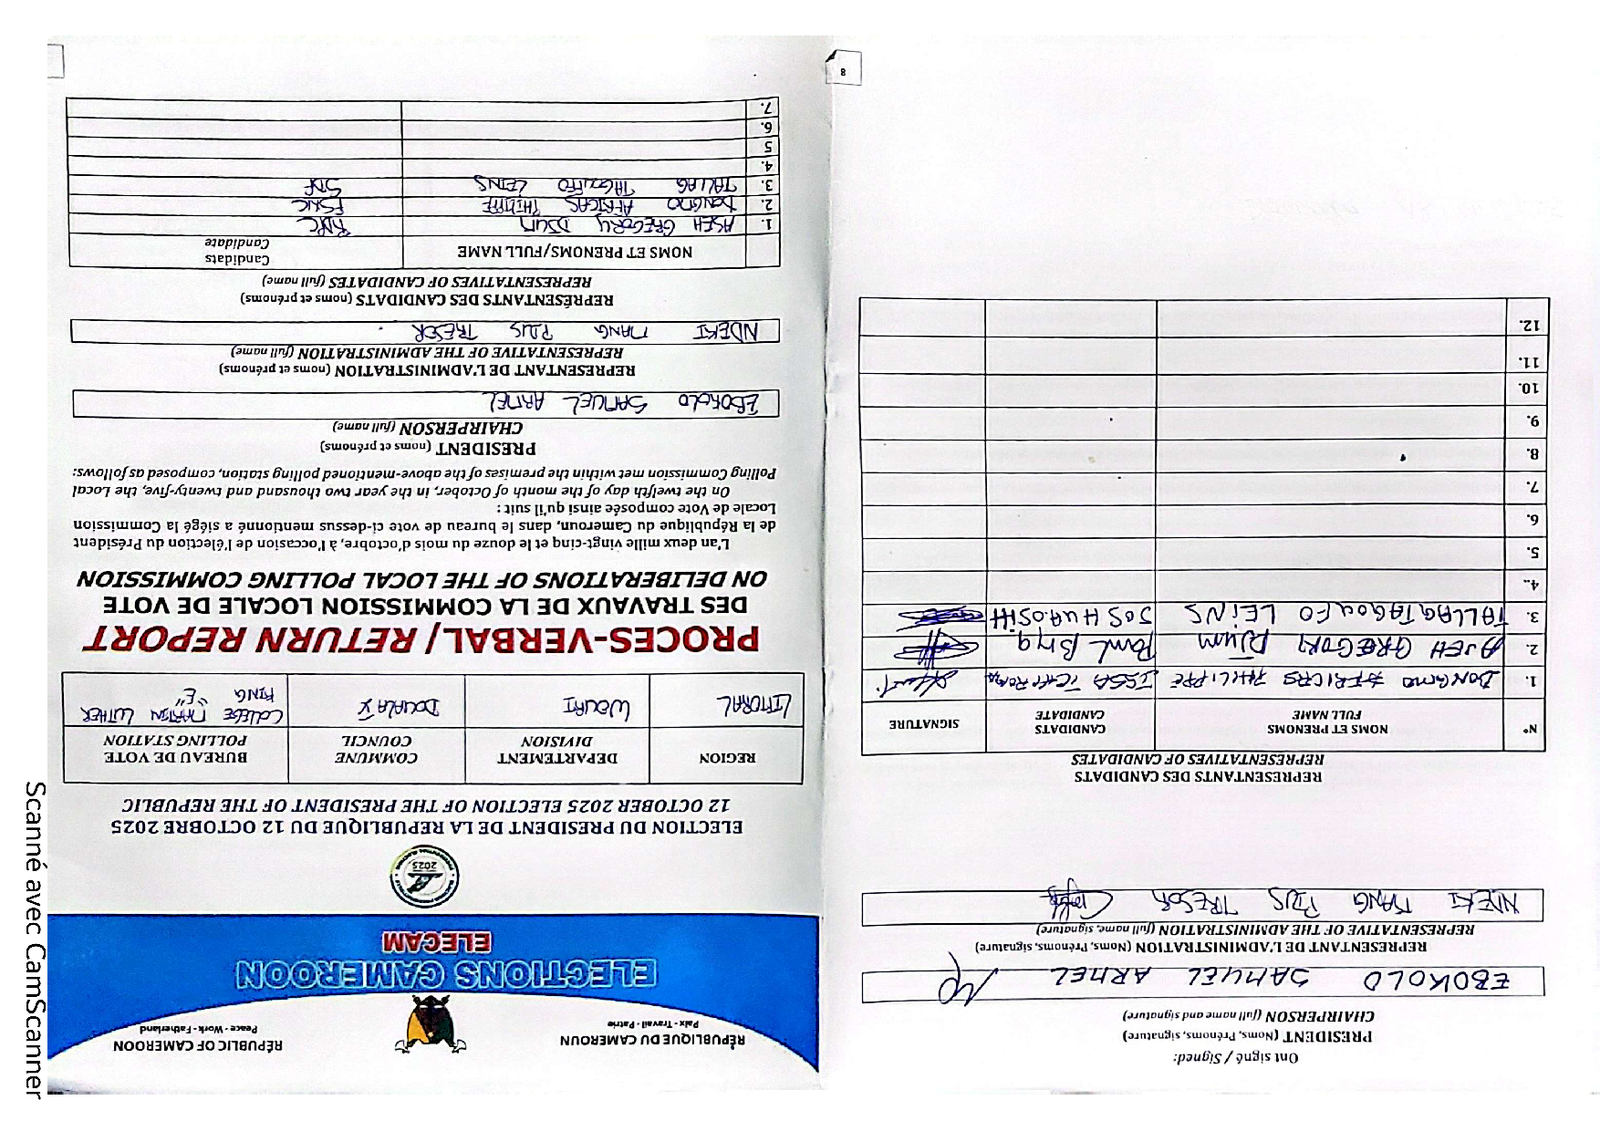 RÉPUBLIQUE DU CAMEROUN
Paix - Travail - Patrie
REPUBLIC OF CAMEROON
Peace - Work - Fatherland
ELECTIONS CAMEROON
ELECAM
2025
ELECTION DU PRESIDENT DE LA REPUBLIQUE DU 12 OCTOBRE 2025
12 OCTOBER 2025 ELECTION OF THE PRESIDENT OF THE REPUBLIC
REGION DEPARTEMENT COMMUNE BUREAU DE VOTE
DIVISION COUNCIL POLLING STATION
LITTORAL WOURI DOUALA V COLLEGE MARTIN LUTHER
KING "E"
PROCES-VERBAL/ RETURN REPORT
DES TRAVAUX DE LA COMMISSION LOCALE DE VOTE
ON DELIBERATIONS OF THE LOCAL POLLING COMMISSION
L'an deux mille vingt-cinq et le douze du mois d'octobre, à l'occasion de l'élection du Président
de la République du Cameroun, dans le bureau de vote ci-dessus mentionné a siégé la Commission
Locale de Vote composée ainsi qu'il suit :
On the twelfth day of the month of October, in the year two thousand and twenty-five, the Local
Polling Commission met within the premises of the above-mentioned polling station, composed as follows:
PRESIDENT (noms et prénoms)
CHAIRPERSON (full name)
EBOKOLO SAMUEL ARMEL
REPRESENTANT DE L'ADMINISTRATION (noms et prénoms)
REPRESENTATIVE OF THE ADMINISTRATION (full name)
NDEKI MANG PIUS TRESOR
REPRÉSENTANTS DES CANDIDATS (noms et prénoms)
REPRESENTATIVES OF CANDIDATES (full name)
NOMS ET PRENOMS/FULL NAME Candidats
Candidate
1. ASEH GREGORY
2. DONGMO AFRICAS PHILIPPE FSNC
3. TALLAG TAGOUFO LEINS
4.
5
6.
7.
Ont signé / Signed:
PRESIDENT (Noms, Prénoms, signature)
CHAIRPERSON (full name and signature)
EBOKOLO SAMUEL ARMEL
REPRESENTANT DE L'ADMINISTRATION (Noms, Prénoms, signature)
REPRESENTATIVE OF THE ADMINISTRATION (full name, signature)
NDEKI MANG PIUS TRESOR
REPRESENTANTS DES CANDIDATS
REPRESENTATIVES OF CANDIDATES
N° NOMS ET PRENOMS CANDIDATS SIGNATURE
FULL NAME CANDIDATE
1. DONGMO AFRICAS PHILIPPE ISSA TCHIROMA
2. ASEH GREGORY Paul Biya
3. TALLAG TAGOUFO LEINS JOSHUA OSHI
4..
5.
6.
7.
8.
9.
10.
11.
12.
8
Scanné avec CamScanner